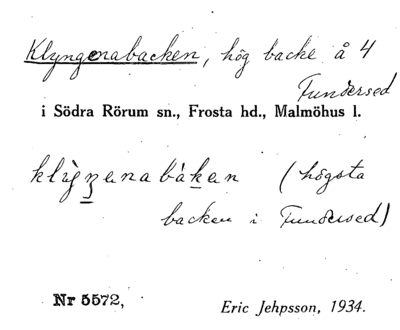 Klyngenabacken, hög backe å 4
Fundersed
i Södra Rörum sn., Frosta hd., Malmöhus l.
(högsta
backen i Fundersed)
Nr 5572,
Eric Jehpsson, 1934.